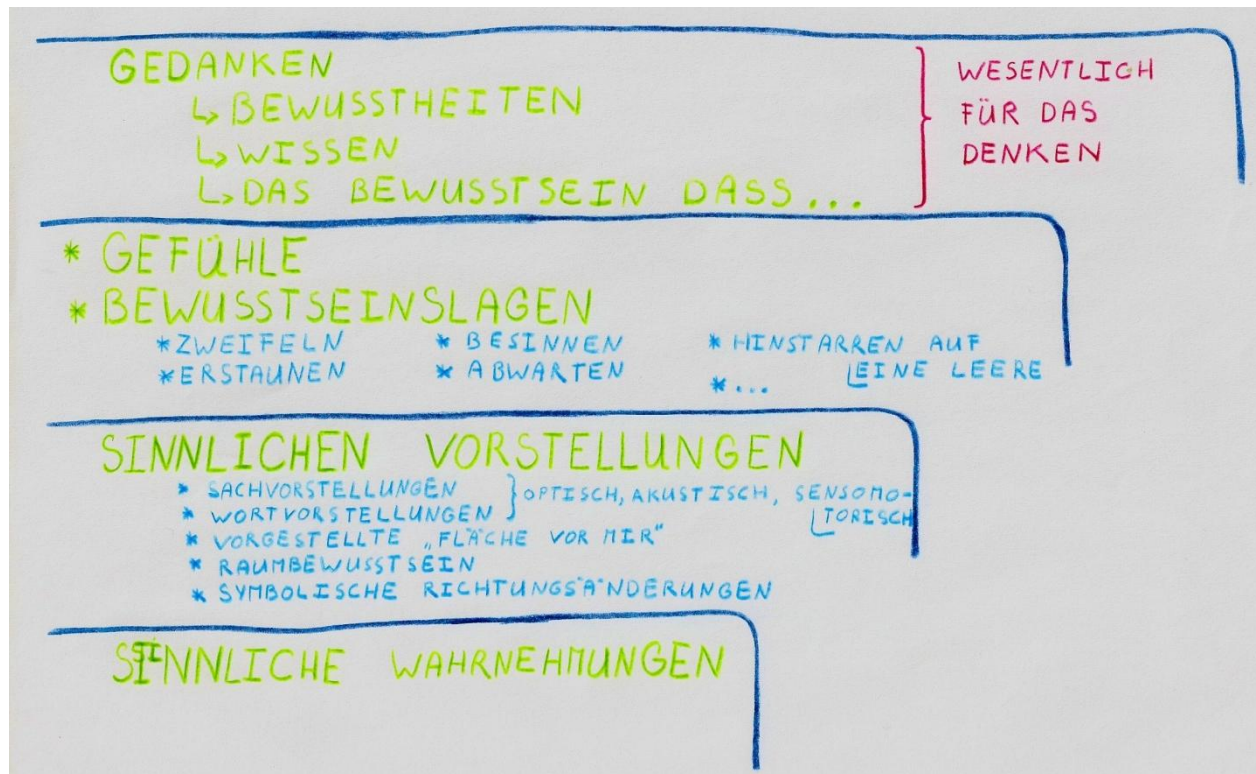 GEDANKEN
↳ BEWUSSTHEITEN
↳ WISSEN
↳ DAS BEWUSSTSEIN DASS...
WESENTLICH
FÜR DAS
DENKEN
* GEFÜHLE
* BEWUSSTSEINSLAGEN
* ZWEIFELN * BESINNEN * HINSTARREN AUF
* ERSTAUNEN * ABWARTEN * ... EINE LEERE
SINNLICHEN VORSTELLUNGEN
* SACHVORSTELLUNGEN } OPTISCH, AKUSTISCH, SENSOMO-
* WORTVORSTELLUNGEN TORISCH
* VORGESTELLTE „FLÄCHE VOR MIR"
* RAUMBEWUSSTSEIN
* SYMBOLISCHE RICHTUNGSÄNDERUNGEN
SINNLICHE WAHRNEHMUNGEN